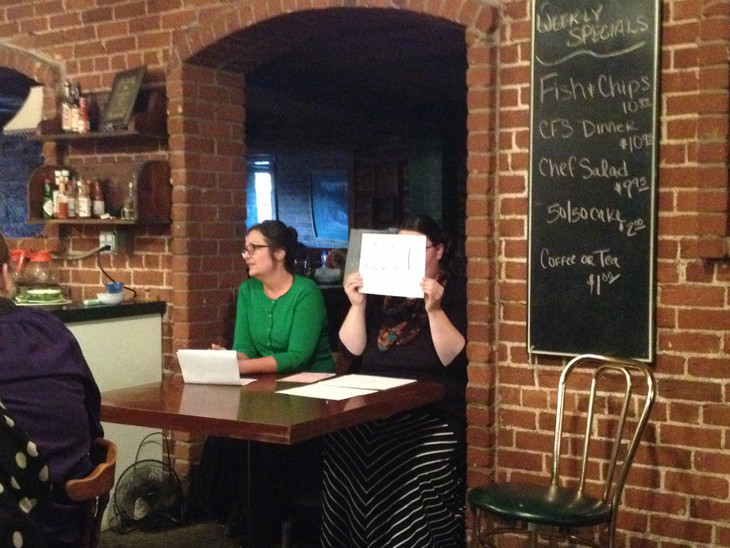 WEEKLY
SPECIALS
Fish + Chips
10.00
CFS Dinner
$10.95
Chef Salad
$9.95
50/50 CAKE
$2.00
Coffee or Tea
$1.00